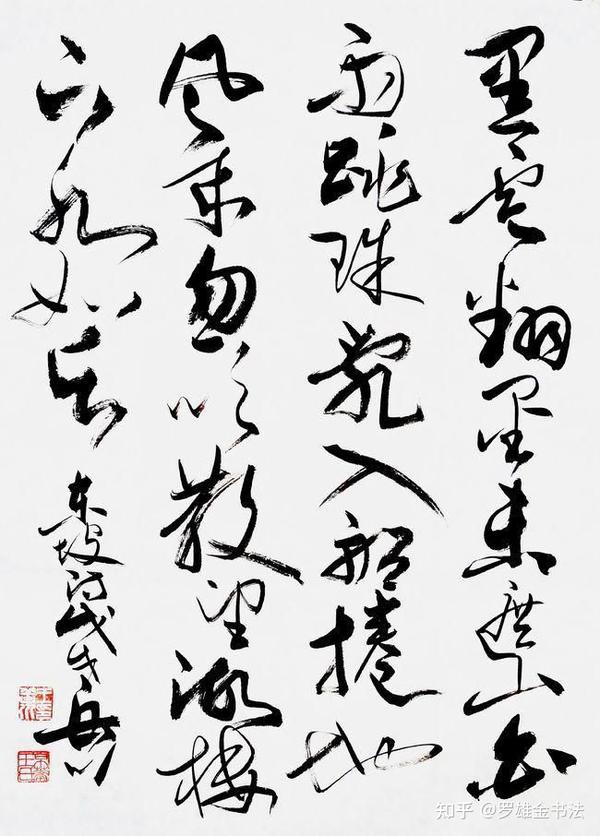 黑雲翻墨未遮山白
雨跳珠亂入船捲地
风来忽吹散望湖楼
下水如天
東坡诗
知乎 @罗雄金书法